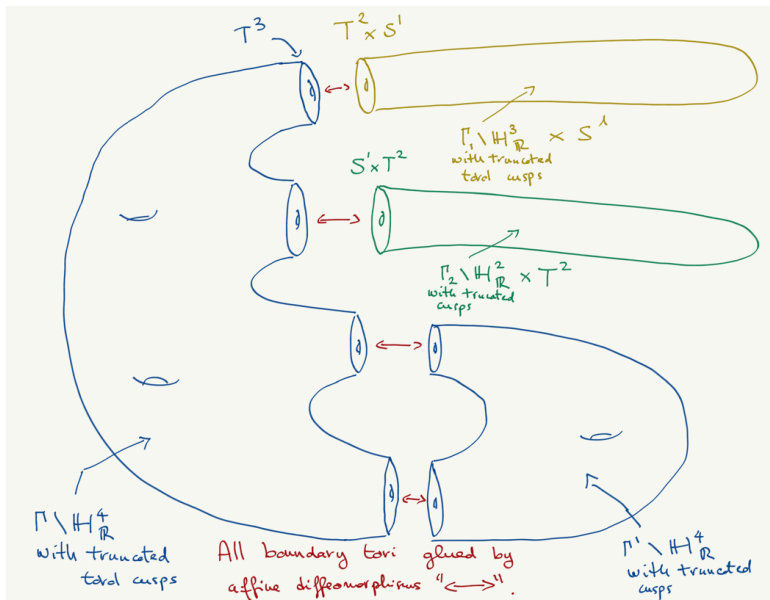 T³
T² × S¹
Γ₁\ℍ³_ℝ × S¹
with truncated
toral cusps
S¹×T²
Γ₂\ℍ²_ℝ × T²
with trucated
cusps
Γ\ℍ⁴_ℝ
with truncated
toral cusps
All boundary tori glued by
affine diffeomorphisms "⟷".
Γ'\ℍ⁴_ℝ
with truncated
cusps